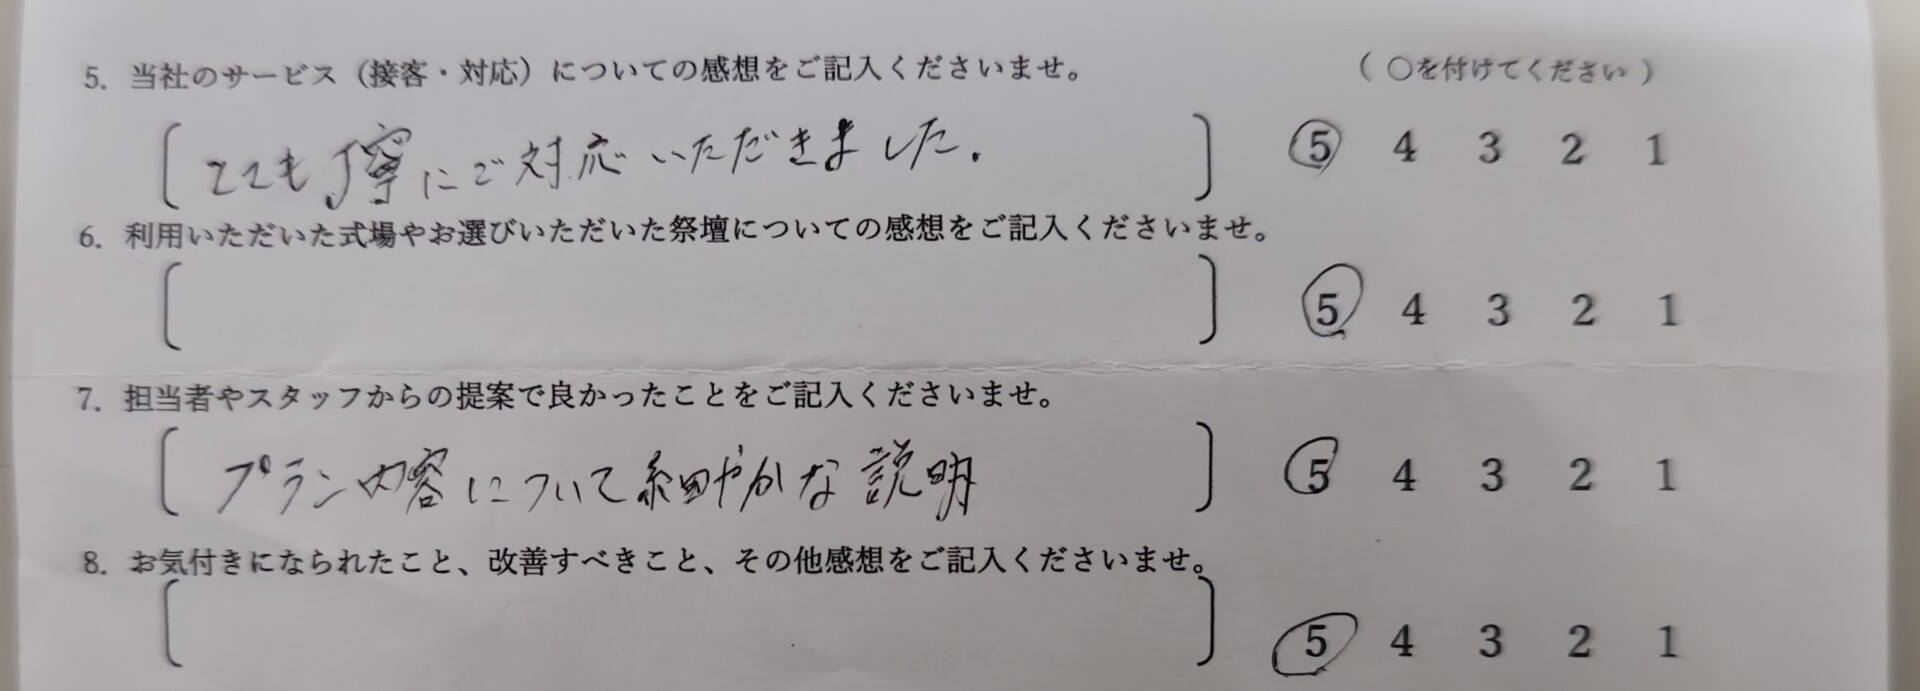 5. 当社のサービス（接客・対応）についての感想をご記入くださいませ。 （ ○を付けてください ）
とても丁寧にご対応いただきました. 5 4 3 2 1
6. 利用いただいた式場やお選びいただいた祭壇についての感想をご記入くださいませ。
5 4 3 2 1
7. 担当者やスタッフからの提案で良かったことをご記入くださいませ。
プラン内容について細やかな説明 5 4 3 2 1
8. お気付きになられたこと、改善すべきこと、その他感想をご記入くださいませ。
5 4 3 2 1